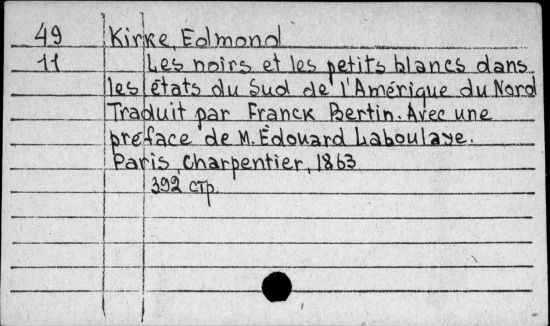 49 Kirke, Edmond
11 Les noirs et les petits blancs dans
les états du Sud de l'Amérique du Nord
Traduit par Franck Bertin. Avec une
préface de M. Édouard Laboulaye.
Paris, Charpentier, 1863
392 стр.